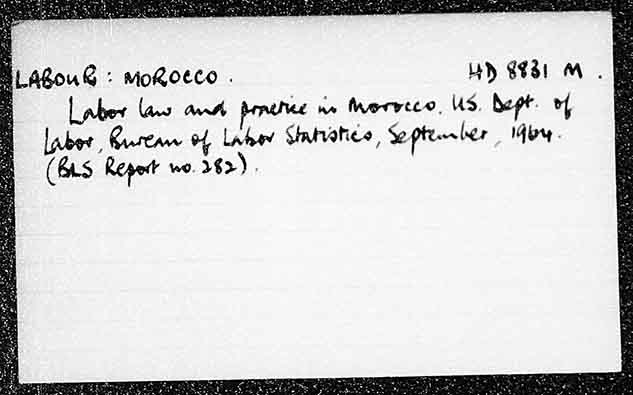 LABOUR : MOROCCO . HD 8831 M .
Labor law and practice in Morocco. U.S. Dept. of
Labor, Bureau of Labor Statistics, September, 1964.
(BLS Report no. 282).